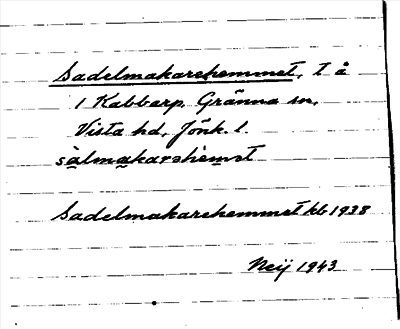 Sadelmakarehemmet, t å
1 Kabbarp, Gränna sn,
Vista hd, Jönk. l.
sàlmakarehemet
Sadelmakarehemmet kb 1938
Neij 1943